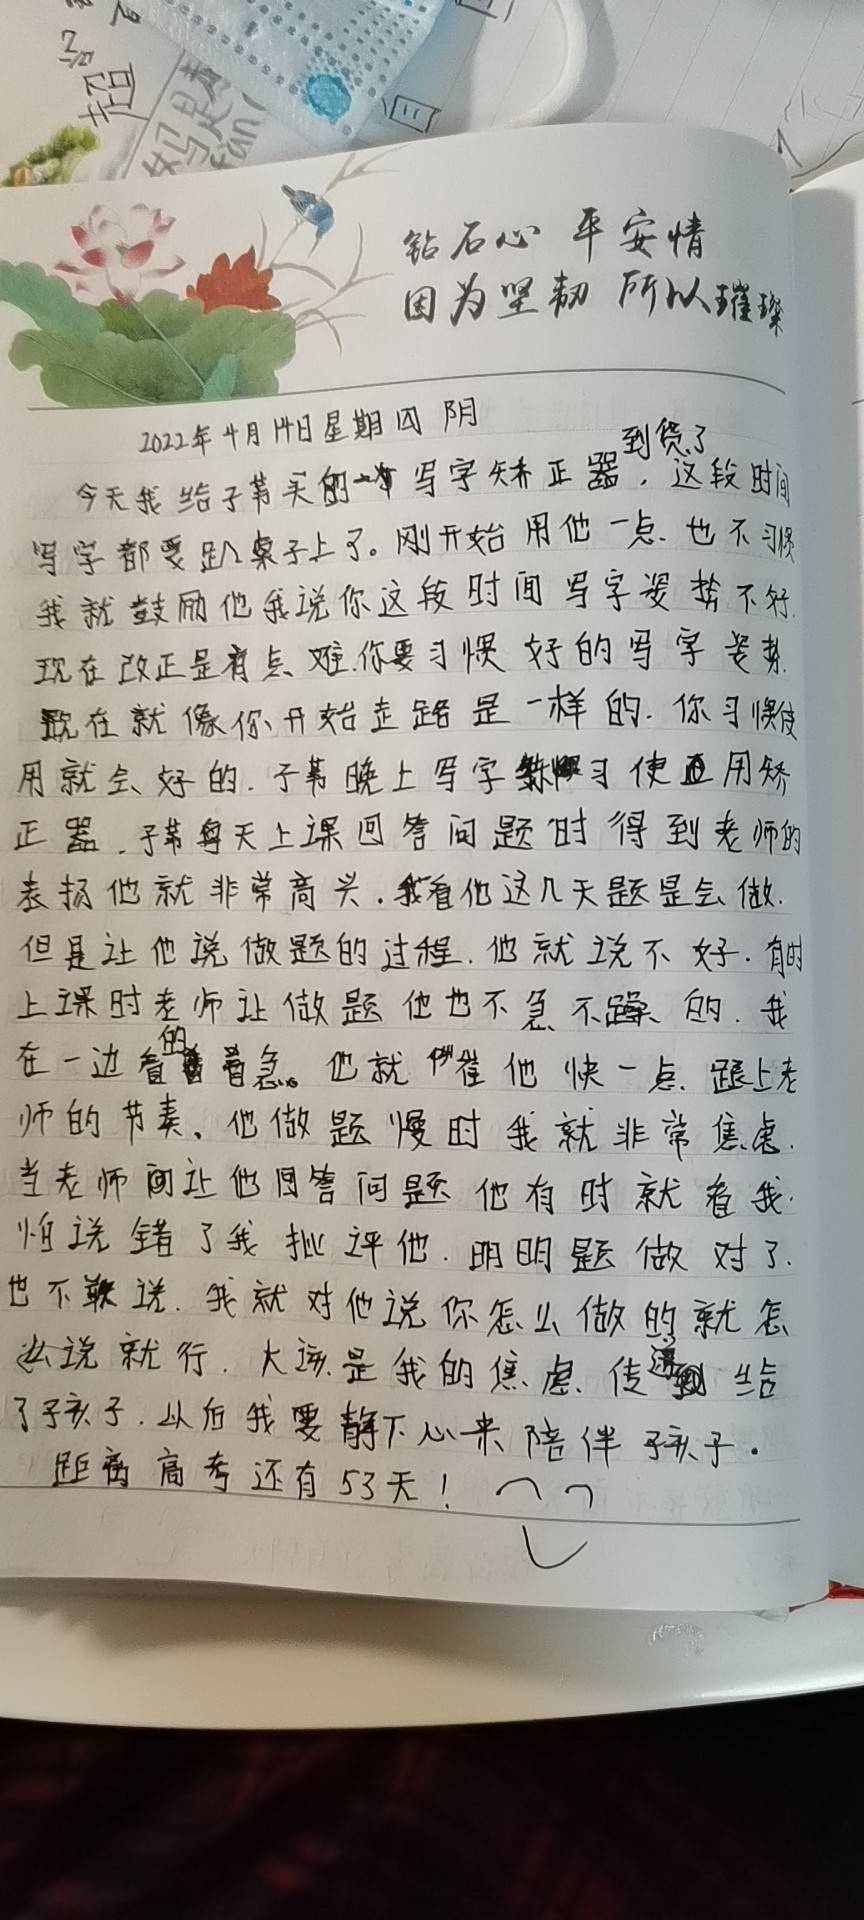 超
妈
是
fun
钻石心 平安情
因为坚韧 所以璀璨
2022年4月14日星期四 阴
到货了
今天我给子苇买的一个写字矫正器，这段时间
写字都要趴桌子上了。刚开始用他一点.也不习惯
我就鼓励他我说你这段时间写字姿势不好.
现在改正是有点难.你要习惯好的写字姿势.
现在就像你开始走路是一样的.你习惯使
用就会好的.子苇晚上写字练习使用矫
正器.子苇每天上课回答问题时得到老师的
表扬他就非常高兴.我看他这几天题是会做.
但是让他说做题的过程.他就说不好.有时
上课时老师让做题他也不急不躁的.我
在一边看的着急。也就催他快一点.跟上老
师的节奏、他做题慢时我就非常焦虑.
当老师让他回答问题他有时就看我.
怕说错了我批评他.明明题做对了.
也不敢说.我就对他说你怎么做的就怎
么说就行.大该是我的焦虑.传递给
了孩子.以后我要静下心来陪伴孩子.
距离高考还有53天！